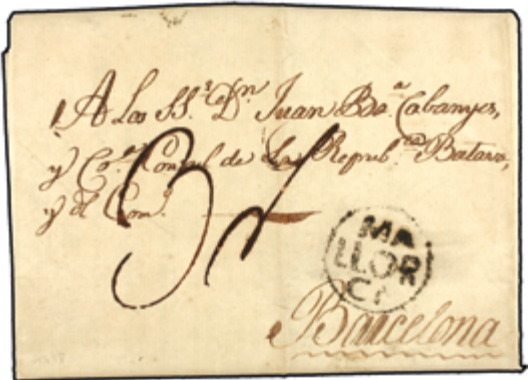 A Los SS.ˢ Dⁿ. Juan Ba.ᵃ Cabanyes,
y Co.ᵃ Consul de Las Repub.ᶜᵃ Batava,
y del Com.º
MA
LLOR
CA
Barcelona